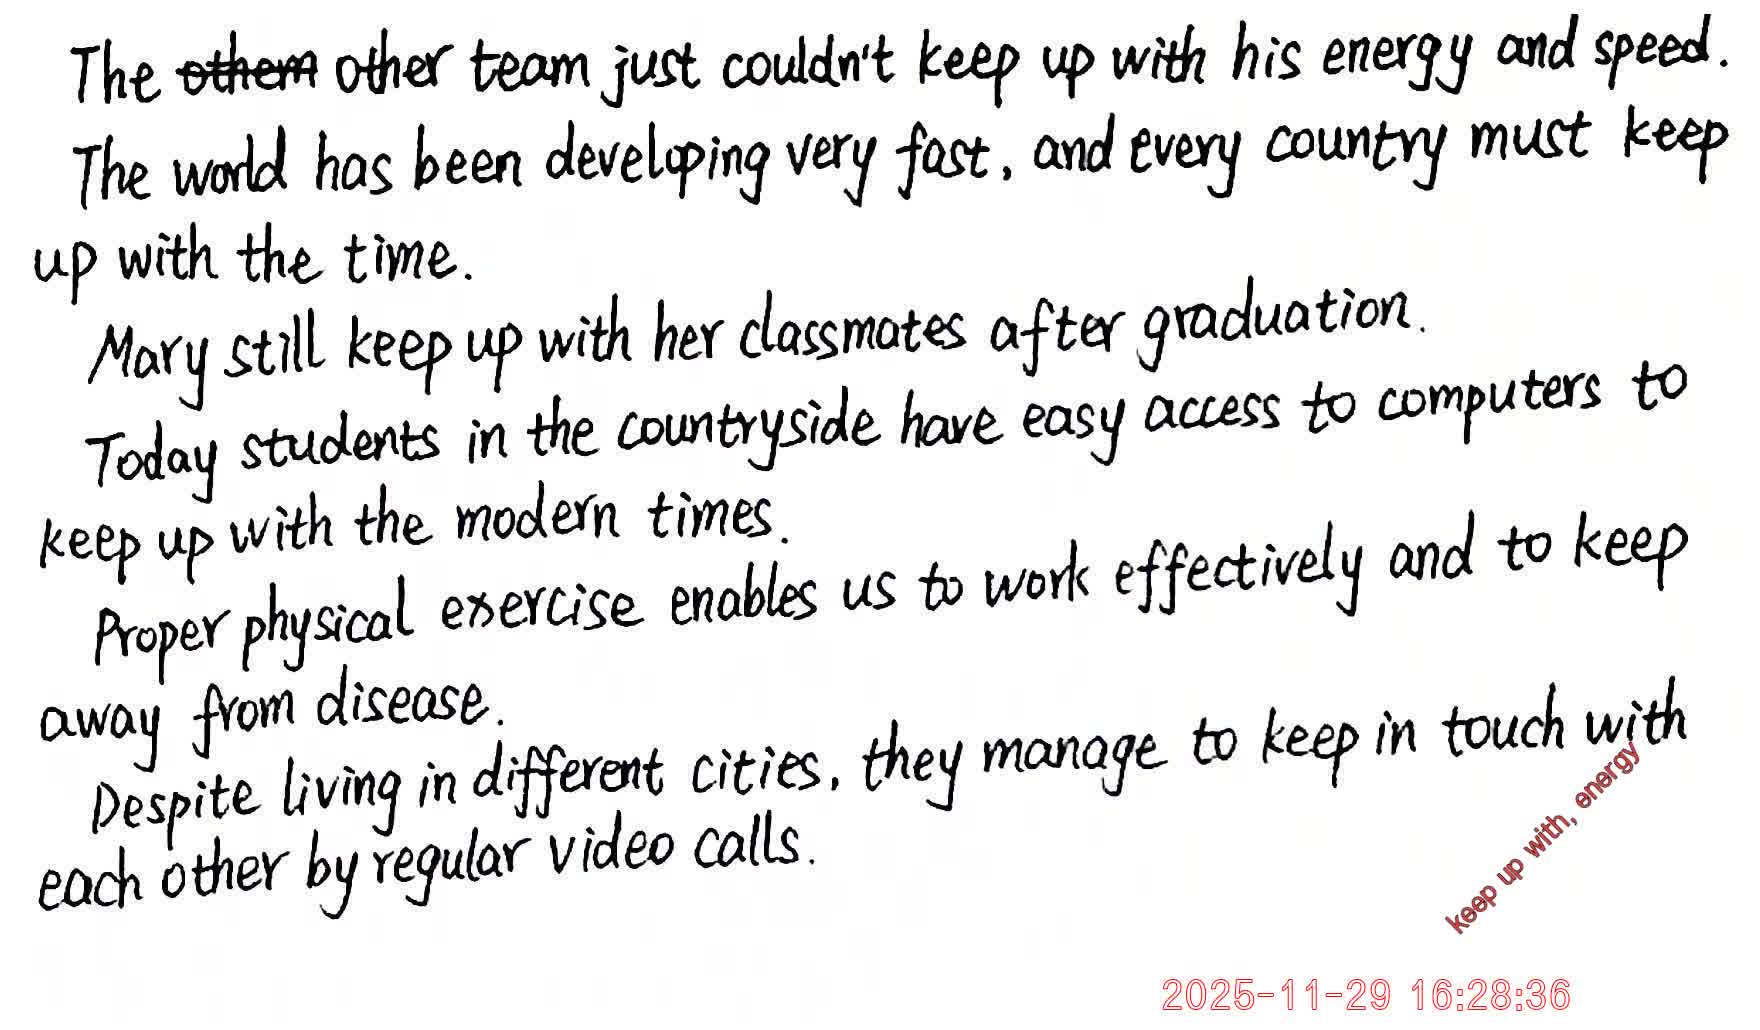 The othem other team just couldn't keep up with his energy and speed.
The world has been developing very fast, and every country must keep
up with the time.
Mary still keep up with her classmates after graduation.
Today students in the countryside have easy access to computers to
keep up with the modern times.
Proper physical exercise enables us to work effectively and to keep
away from disease.
Despite living in different cities, they manage to keep in touch with
each other by regular video calls.
keep up with, energy
2025-11-29 16:28:36